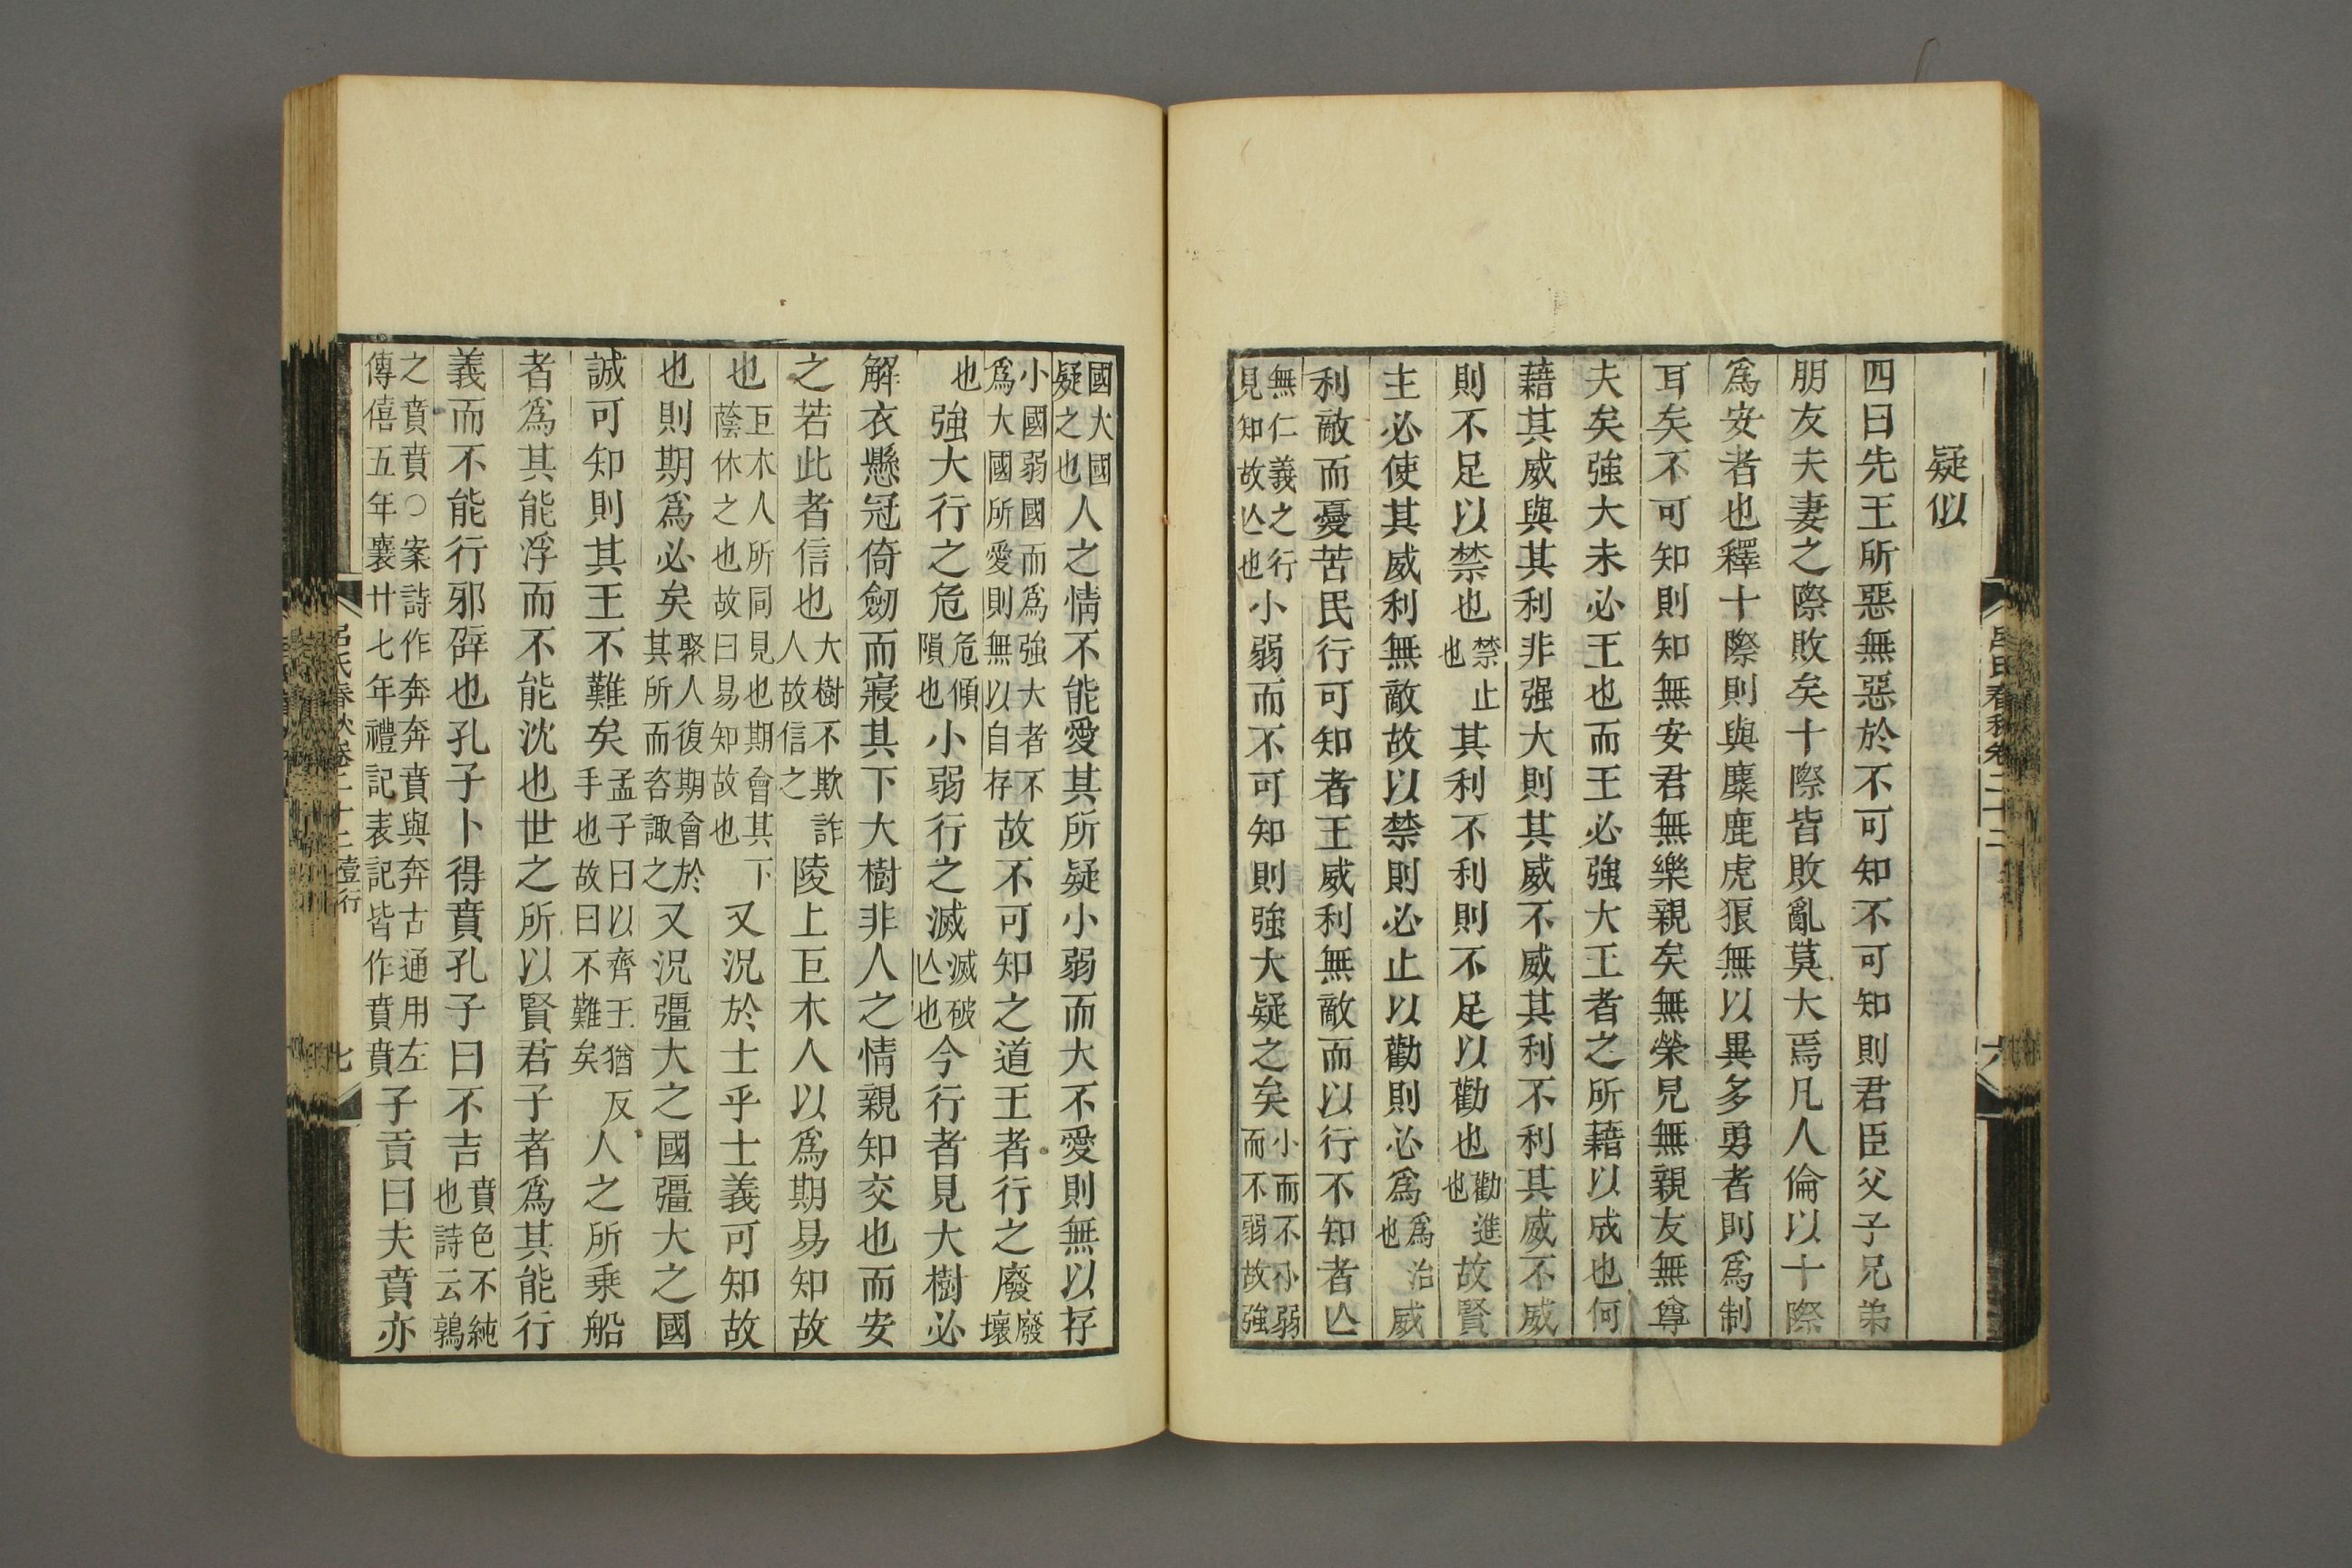 呂氏春秋卷二十二 六
疑似
四曰先王所惡無惡於不可知不可知則君臣父子兄弟
朋友夫妻之際敗矣十際皆敗亂莫大焉凡人倫以十際
爲安者也釋十際則與麋鹿虎狼無以異多勇者則爲制
耳矣不可知則知無安君無樂親矣無榮兄無親友無尊
夫矣強大未必王也而王必強大王者之所藉以成也何
藉其威與其利非强大則其威不威其利不利其威不威
則不足以禁也禁止也其利不利則不足以勸也勸進也故賢
主必使其威利無敵故以禁則必止以勸則必爲爲治也威
利敵而憂苦民行可知者王威利無敵而以行不知者亾
無仁義之行見知故亾也小弱而不可知則強大疑之矣小而不小弱而不弱故強
國大國疑之也人之情不能愛其所疑小弱而大不愛則無以存
小國弱國而爲強大者不爲大國所愛則無以自存故不可知之道王者行之廢廢壞
也強大行之危危傾隕也小弱行之滅滅破亾也今行者見大樹必
解衣懸冠倚劒而寢其下大樹非人之情親知交也而安
之若此者信也大樹不欺詐人故信之陵上巨木人以爲期易知故
也巨木人所同見也期會其下蔭休之也故曰易知故也又況於士乎士義可知故
也則期爲必矣聚人復期會於其所而咨諏之又況彊大之國彊大之國
誠可知則其王不難矣孟子曰以齊王猶反手也故曰不難矣人之所乘船
者爲其能浮而不能沈也世之所以賢君子者爲其能行
義而不能行邪辟也孔子卜得賁孔子曰不吉賁色不純也詩云鶉
之賁賁○案詩作奔奔賁與奔古通用左傳僖五年襄廿七年禮記表記皆作賁賁子貢曰夫賁亦
呂氏春秋卷二十二壹行 七